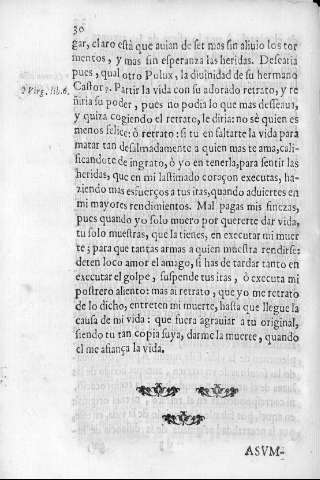 30
gar, claro està que auian de ser mas sin aliuio los tor
mentos, y mas sin esperanza las heridas. Desearia
pues, qual otro Polux, la diuinidad de su hermano
2 Virg. lib. 6.
Castor2. Partir la vida con su adorado retrato, y re
ñiria su poder, pues no podia lo que mas desseaua,
y quiza cogiendo el retrato, le diria: no sè quien es
menos felice: ò retrato: si tu en faltarte la vida para
matar tan desalmadamente a quien mas te ama, cali-
ficandote de ingrato, ò yo en tenerla, para sentir las
heridas, que en mi lastimado coraçon executas, ha-
ziendo mas esfuerços a tus iras, quando aduiertes en
mi mayores rendimientos. Mal pagas mis finezas,
pues quando yo solo muero por quererte dar vida,
tu solo muestras, que la tienes, en executar mi muer
te; para que tantas armas a quien muestra rendirse:
deten loco amor el amago, si has de tardar tanto en
executar el golpe, suspende tus iras, ò executa mi
postrero aliento: mas ai retrato, que yo me retrato
de lo dicho, entreten mi muerte, hasta que llegue la
causa de mi vida: que fuera agrauiar a tu original,
siendo tu tan copia suya, darme la muerte, quando
el me afiança la vida.
ASVM-